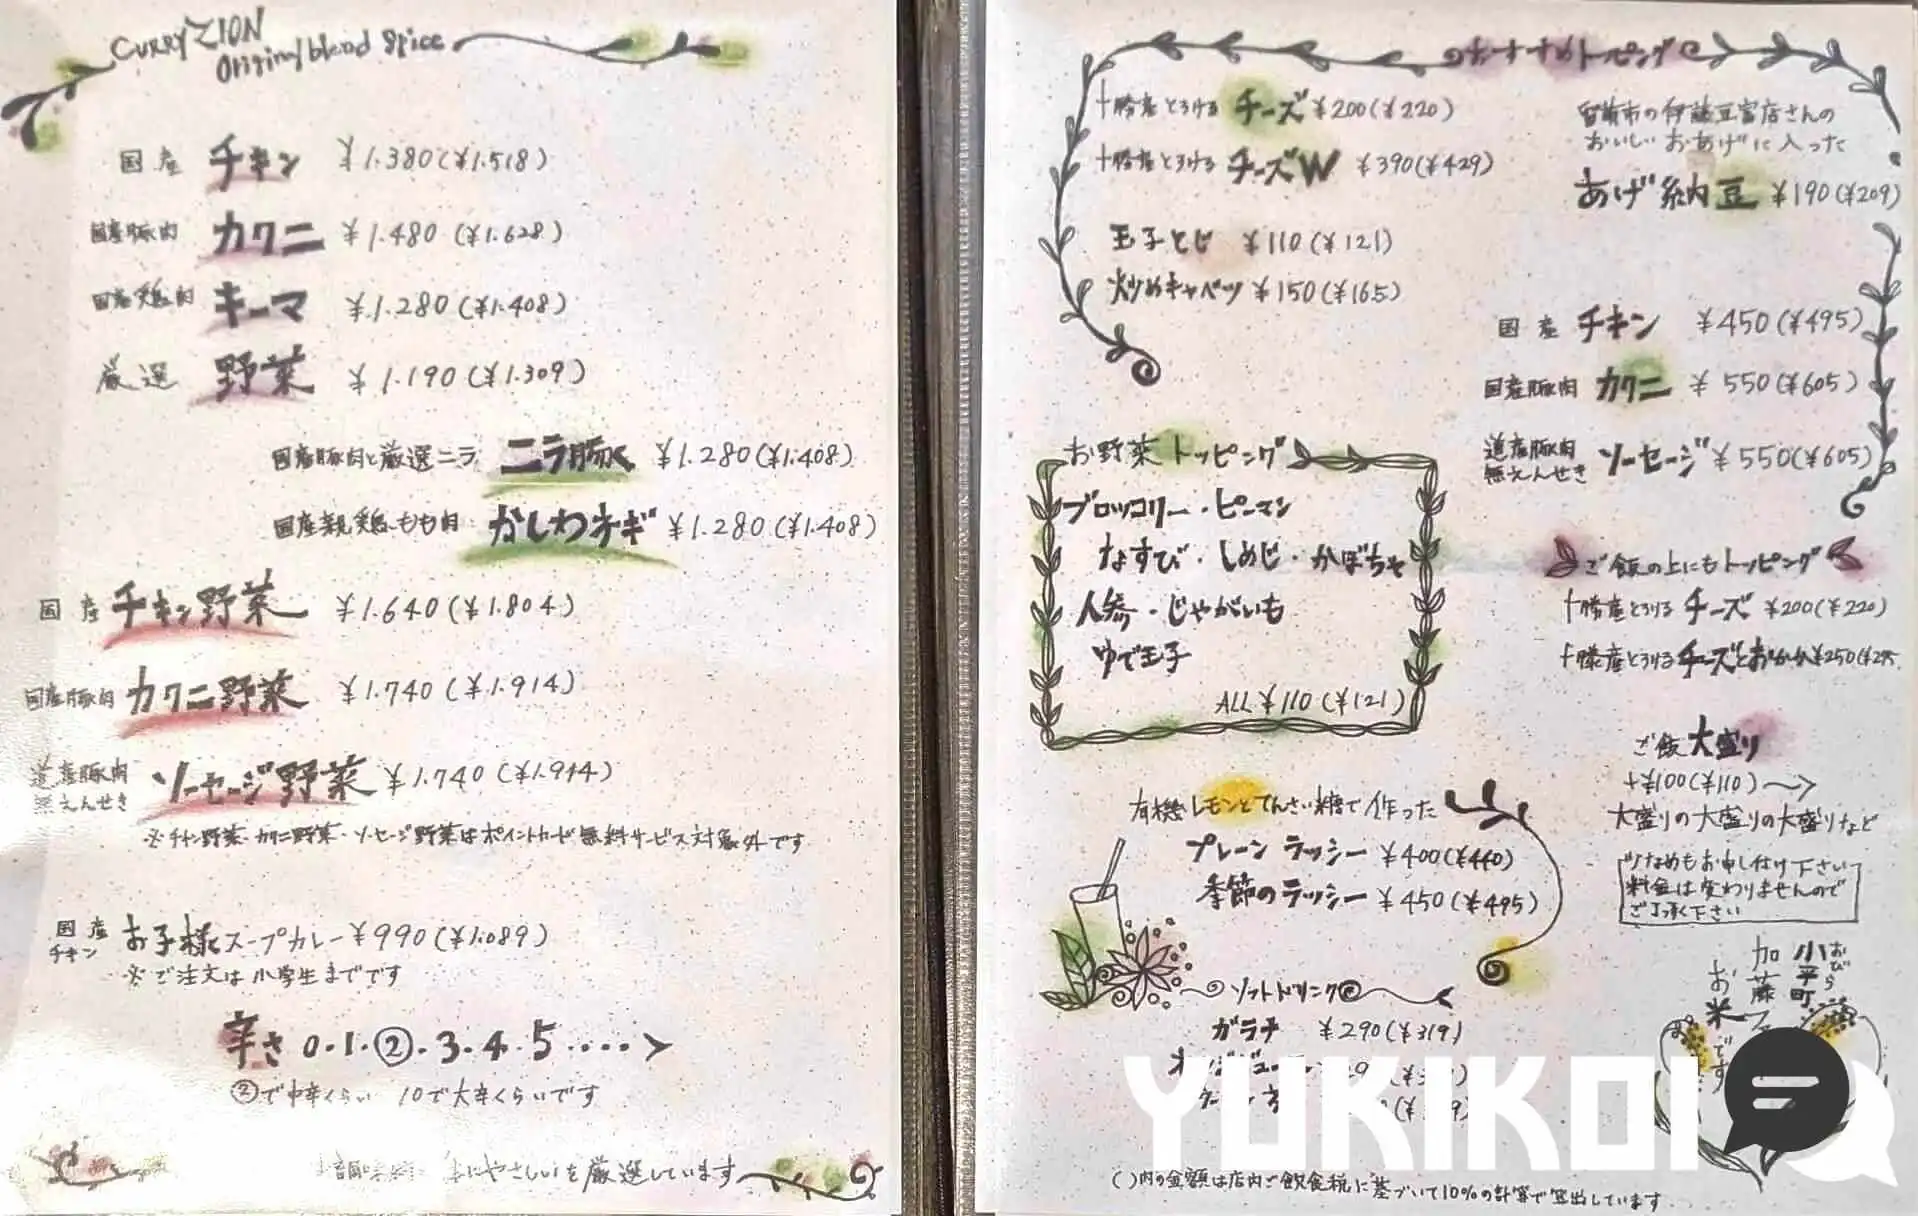 CURRY ZION
Original blend Spice
国産 チキン ¥1.380(¥1.518)
国産豚肉 カクニ ¥1.480(¥1.628)
国産鶏肉 キーマ ¥1.280(¥1.408)
厳選 野菜 ¥1.190(¥1.309)
国産豚肉と厳選ニラ ニラ豚く ¥1.280(¥1.408)
国産親鶏もも肉 かしわネギ ¥1.280(¥1.408)
国産 チキン野菜 ¥1.640(¥1.804)
国産豚肉 カクニ野菜 ¥1.740(¥1.914)
道産豚肉
無えんせき ソーセージ野菜 ¥1.740(¥1.914)
※チキン野菜・カクニ野菜・ソーセージ野菜はポイントカード無料サービス対象外です
国産
チキン お子様スープカレー ¥990(¥1.089)
※ご注文は小学生までです
辛さ 0・1・②・3・4・5・・・・
②で中辛くらい 10で大辛くらいです
にやさしいを厳選しています
おすすめトッピング
十勝産とろける チーズ ¥200(¥220)
十勝産とろける チーズW ¥390(¥429)
玉子とじ ¥110(¥121)
炒めキャベツ ¥150(¥165)
留萌市の伊藤豆富店さんの
おいしいおあげに入った
あげ納豆 ¥190(¥209)
国産 チキン ¥450(¥495)
国産豚肉 カクニ ¥550(¥605)
道産豚肉
無えんせき ソーセージ ¥550(¥605)
お野菜トッピング
ブロッコリー・ピーマン
なすび・しめじ・かぼちゃ
人参・じゃがいも
ゆで玉子
ALL ¥110(¥121)
ご飯の上にもトッピング
十勝産とろける チーズ ¥200(¥220)
十勝産とろける チーズとおかか ¥250(¥275
ご飯大盛り
+¥100(¥110)〜
大盛りの大盛りの大盛りなど
少なめもお申し付け下さい
料金は変わりませんので
ご了承下さい
おびら
小平町
加藤フ
お米です
有機レモンとてんさい糖で作った
プレーン ラッシー ¥400(¥440)
季節のラッシー ¥450(¥495)
ソフトドリンク
ガラナ ¥290(¥319)
YUKIKOI
( )内の金額は店内ご飲食税に基づいて10%の計算で算出しています